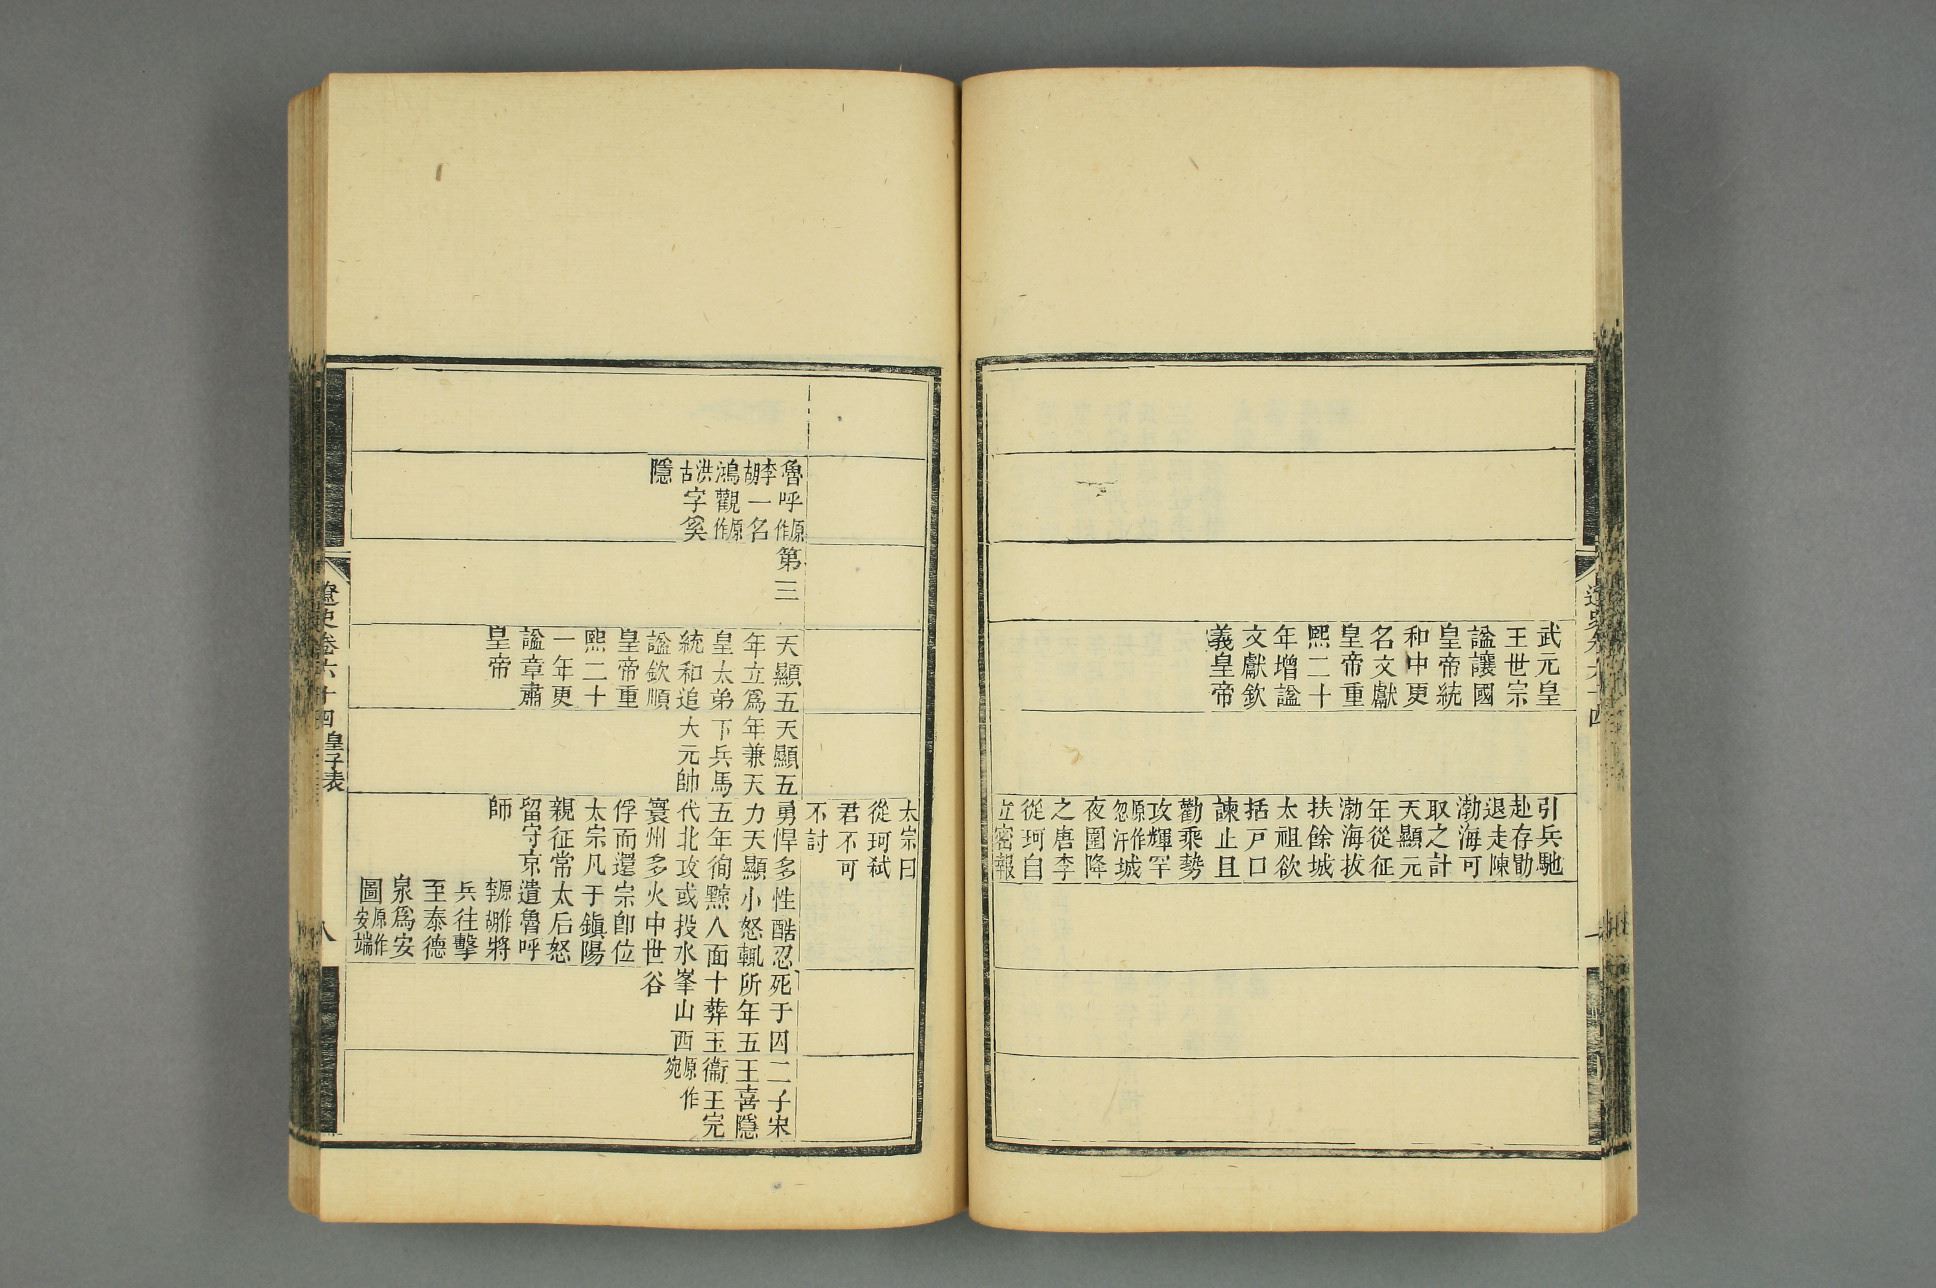 武元皇
王世宗
諡讓國
皇帝統
和中更
名文獻
皇帝重
熙二十
年增諡
文獻欽
義皇帝
引兵馳
赴存勖
退走陳
渤海可
取之計
天顯元
年從征
渤海拔
扶餘城
太祖欲
括戸口
諫止且
勸乘勢
攻輝罕
原作忽汗城
夜圍降
之唐李
從珂自
立密報
太宗曰
從珂弑
君不可
不討
魯呼原作
李胡一名
鴻觀原作
洪古字奚
隱
第三
天顯五
年立爲
皇太弟
統和追
諡欽順
皇帝重
熙二十
一年更
諡章肅
皇帝
天顯五
年兼天
下兵馬
大元帥
勇悍多
力天顯
五年徇
代北攻
寰州多
俘而還
太宗凡
親征常
留守京
師
性酷忍
小怒輒
黥人面
或投水
火中世
宗卽位
于鎮陽
太后怒
遣魯呼
原作李胡將
兵往擊
至泰德
泉爲安
圖原作安端
死于囚
所年五
十葬玉
峯山西
谷
二子宋
王喜隱
衞王完
原作宛
遼史卷六十四 皇子表
八